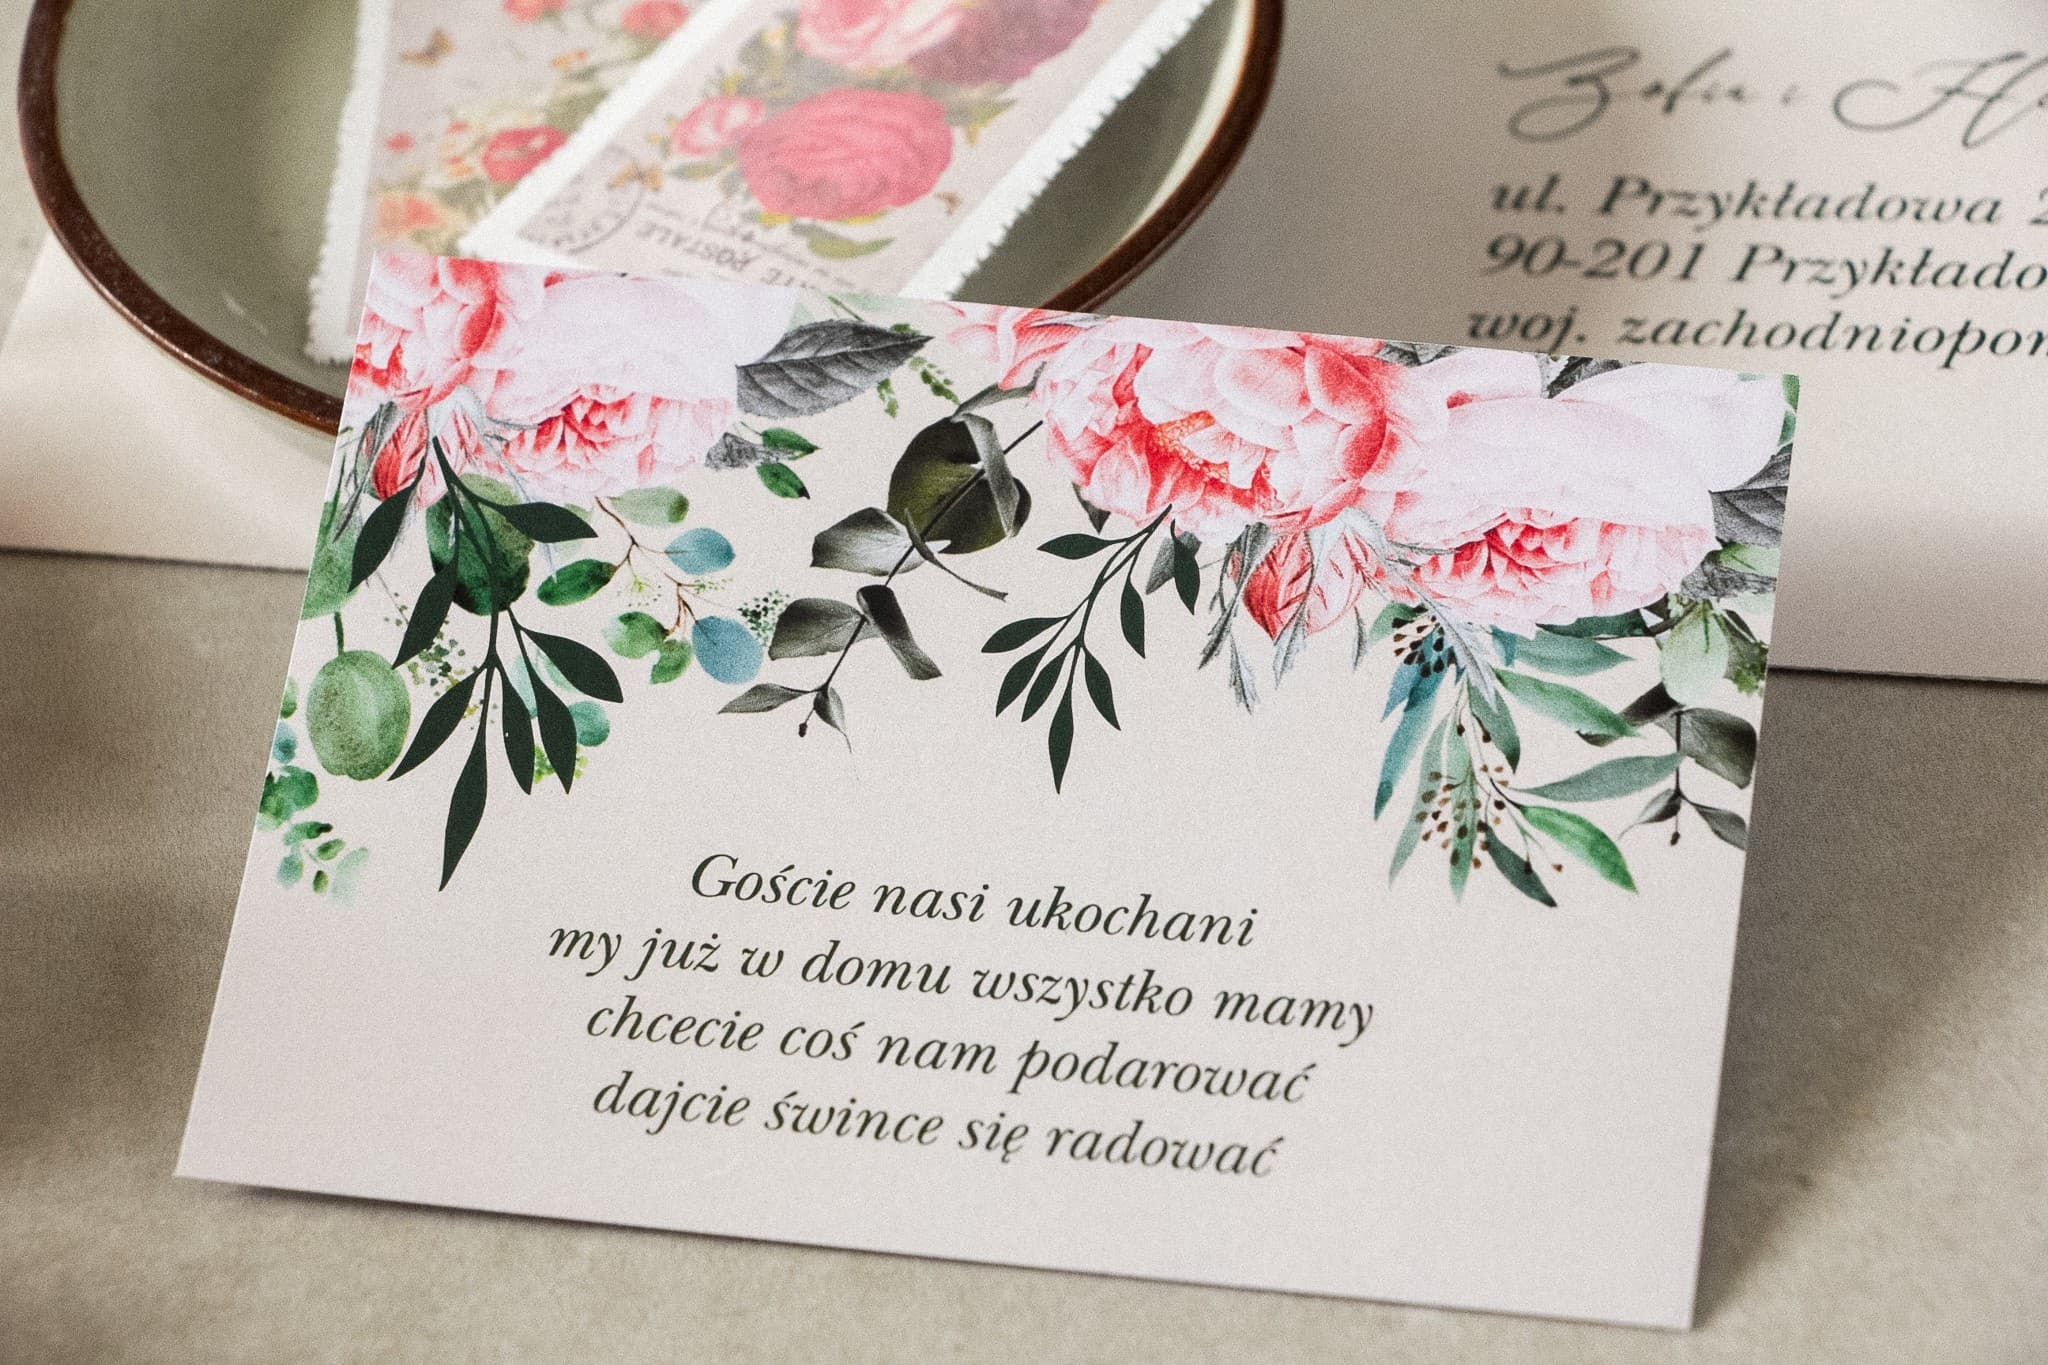 Zofia i
ul. Przykładowa
90-201
woj.
POSTALE
Goście nasi ukochani
my już w domu wszystko mamy
chcecie coś nam podarować
dajcie śwince się radować